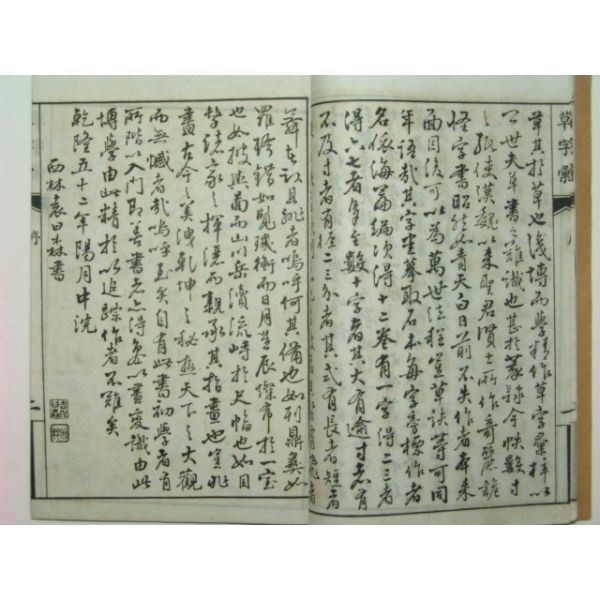 草字彙
序
草其於草也淺博而學精作草字彙梓以
公世夫草書之難識也甚於篆隸今帙數寸
之紙使漢魏以來聖君賢士所作奇麗詭
怪字書昭然如青天白日前不失作者本來
面目後可以為萬世法程豈草訣等可同
年語哉其字皆摹取石本每字旁標作者
名依海篇編次得十二卷有一字得二三者
得六七者多至數十字者其大有逾寸者有
不及寸者有僅二三分者其式有長者短者
舞者
且跳者嗚呼何其備也如列鼎彝如
羅珍錯如覽璣衡而日月星辰燦布於一室
也如披輿圖而山川岳瀆流峙於尺幅也如目
擊諸家之揮灑而親承其指畫也豈非
盡古今之美洩乾坤之秘極天下之大觀
而無憾者哉嗚呼至矣自有此書初學者有
所階以入門即善書者亦得參以盡變識由此
博學由此精於以追踪作者不難矣
乾隆五十二年陽月中浣
西林袁日森書
序
二